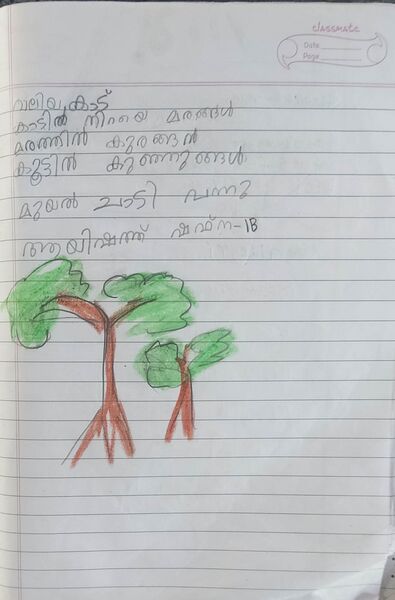 classmate
Date
Page
വലിയ കാട്
കാട്ടിൽ നിറയെ മരങ്ങൾ
മരത്തിൻ കുരങ്ങൻ
കൂട്ടിൽ കുഞ്ഞുങ്ങൾ
മുയൽ ചാടി വന്നു
ആയിഷത്ത് ഷഫ്ന-1B